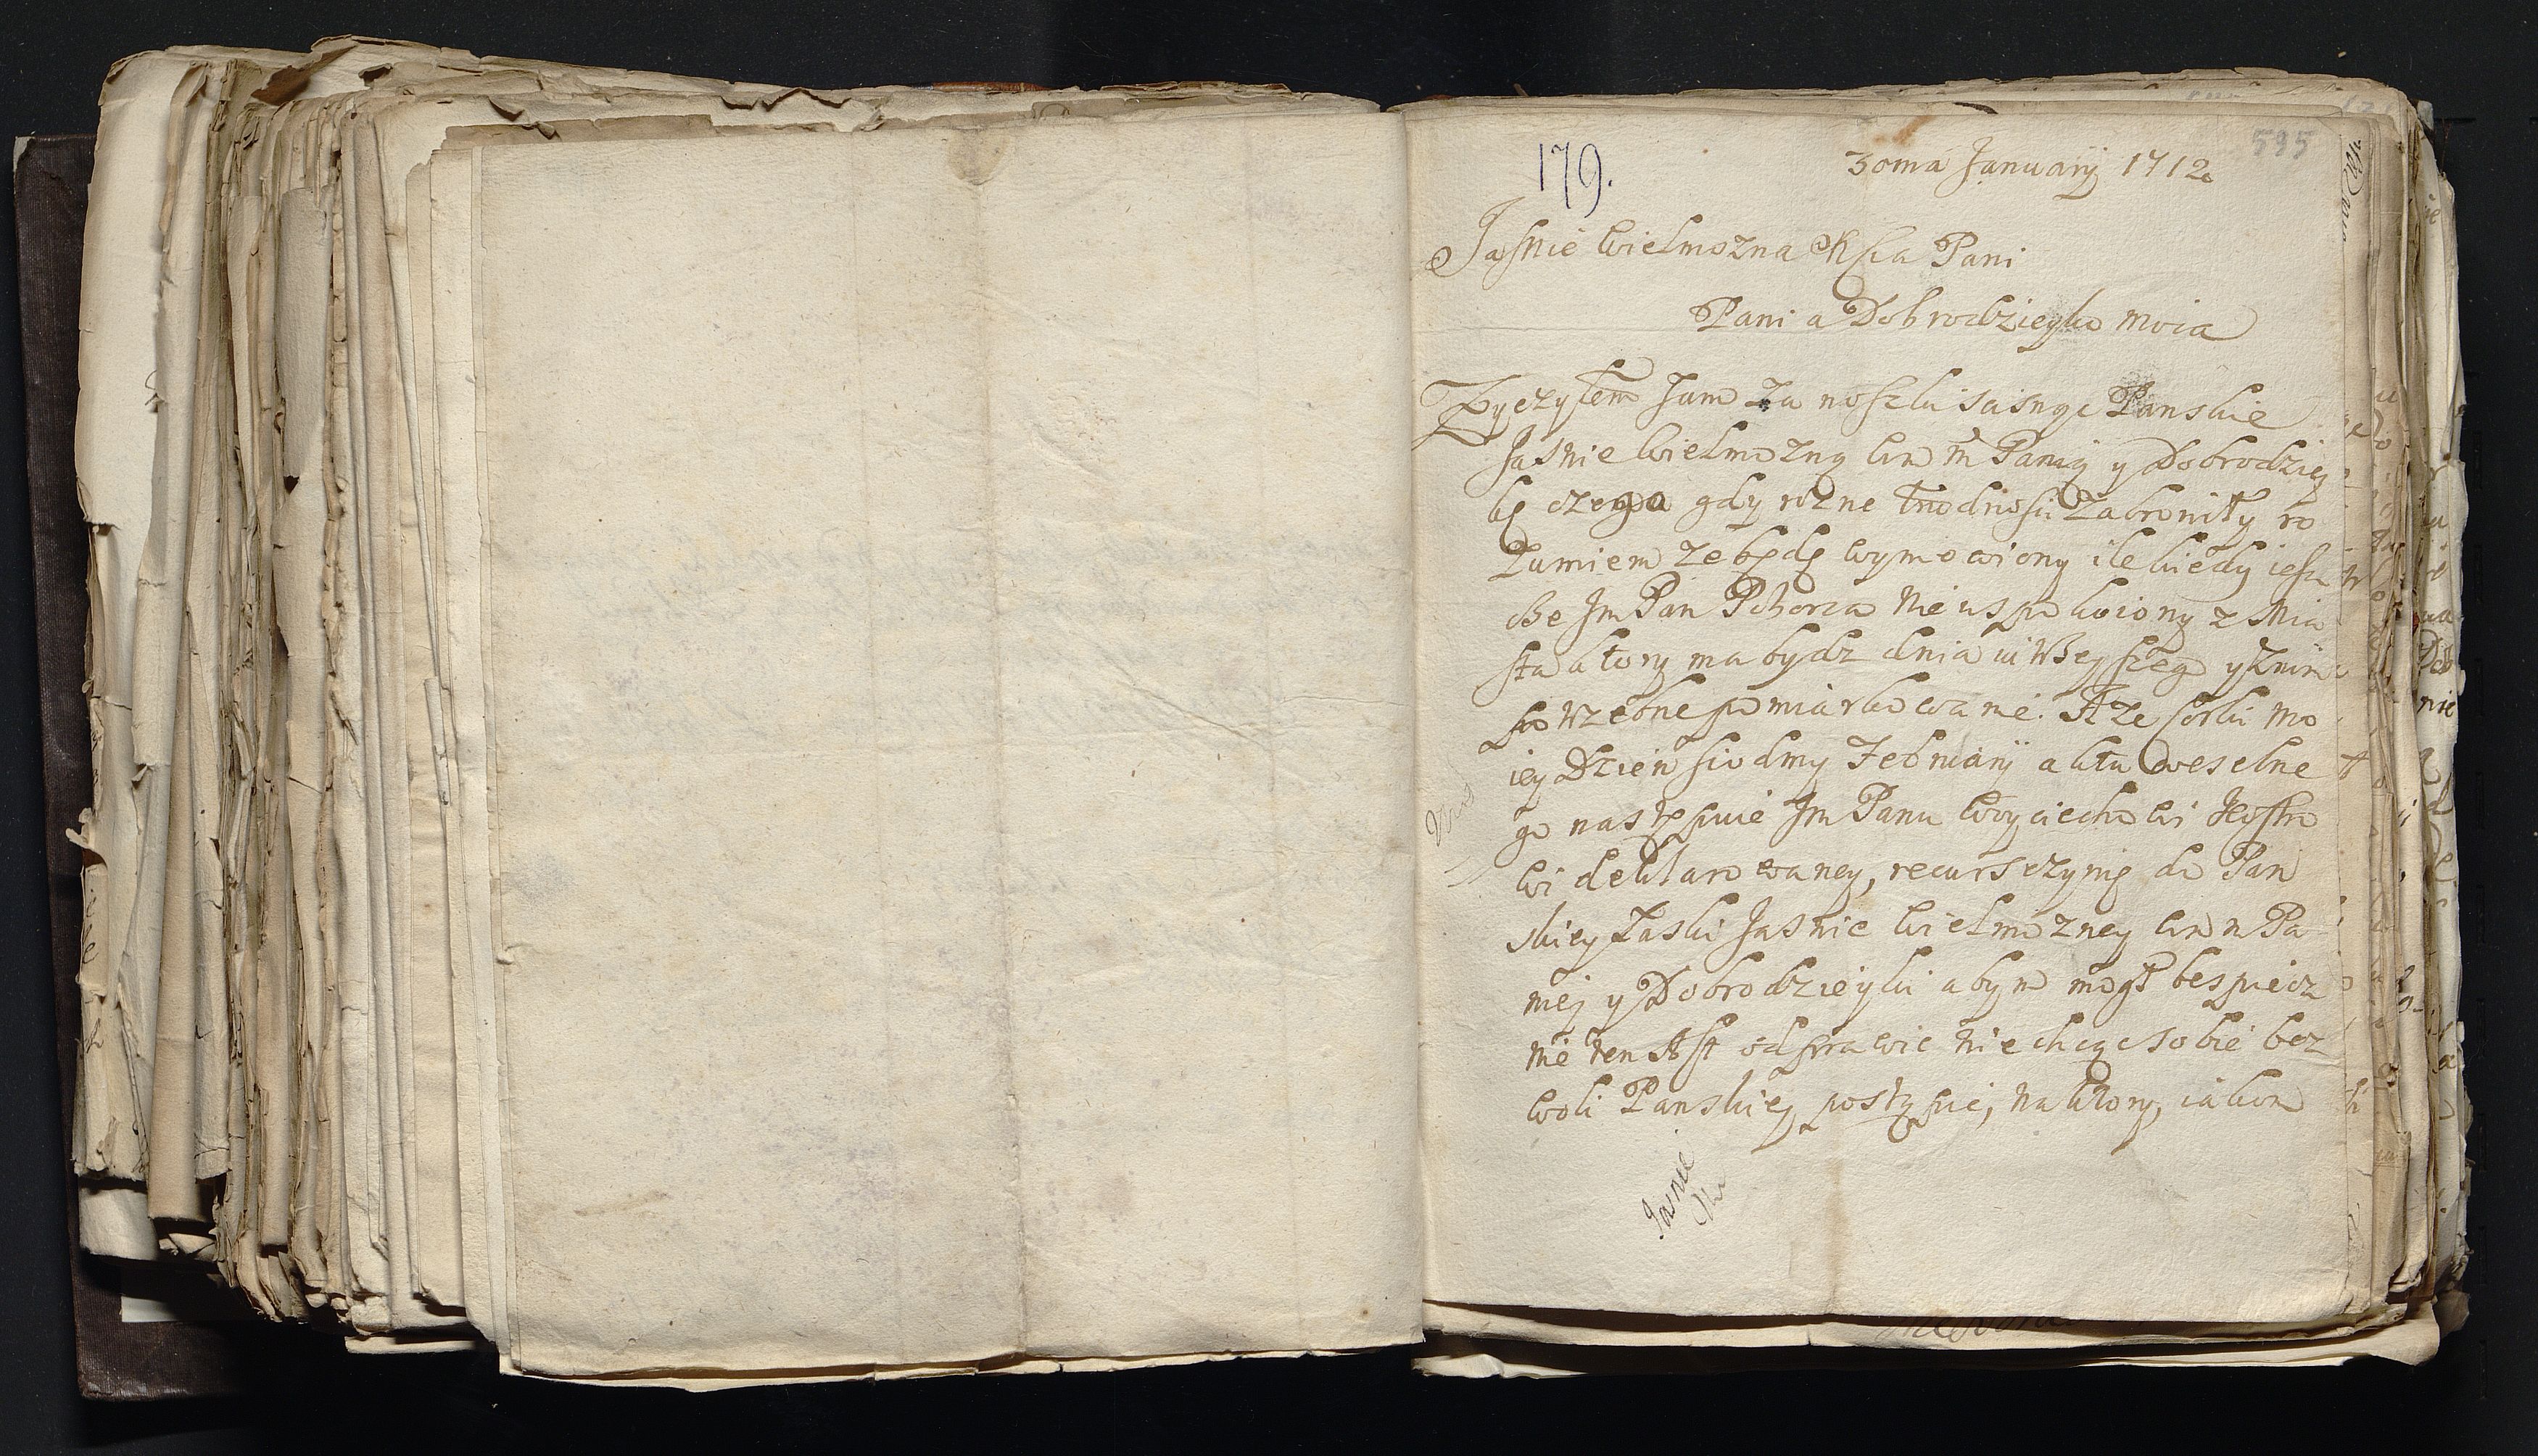 179.
595
30ma January 1712
Jasnie Wielmozna Msćia Pani
Pani a Dobrodzieyko moia
Zyczyłem sam za noszki scisnąc Panskie
Jasnie Wielmozny Wm m Paniey y Dobrodziey
ki czego gdy rozne trudnosci zabroniły ro
zumiem ze będę wymowiony ile kiedy iesz
cze Jm Pan Pchorza nie uspokoiony z Mia
sta ktory ma bydz dnia
potrzebne pomiarkowanie. A ze corki mo
iey Dzien siodmy Februarÿ aktu weselne
go następuie Jm Panu Woyciechowi
wi deklarowaney, recurs czynię do Pan
skiey łaski Jasnie Wielmozney Wm m Pa
niej y Dobrodzieyki abym mogł bespiecz
nie ten Akt odprawic nie chcąc sobie bez
woli Panskiey postąpic, na ktory, iakom
Jasnie